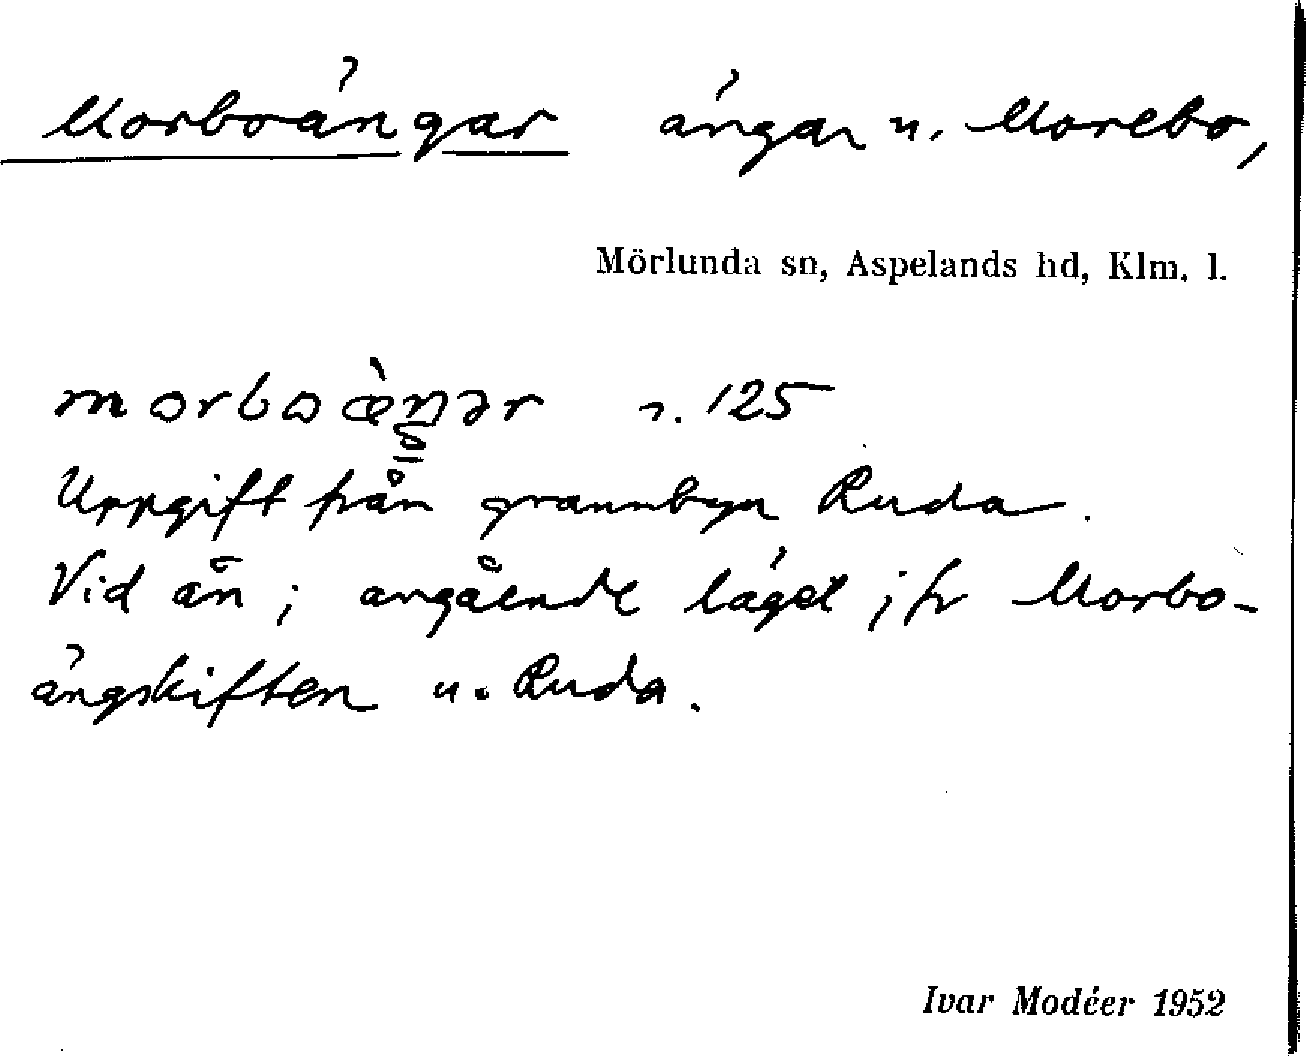 Morboängar ängar u. Morebo,
Mörlunda sn, Aspelands hd, Klm. l.
morboæ̀ŋər r. 125
Uppgift från grannbyn Ruda.
Vid ån; angående läget jfr Morbo-
ängskiften u. Ruda.
Ivar Modéer 1952